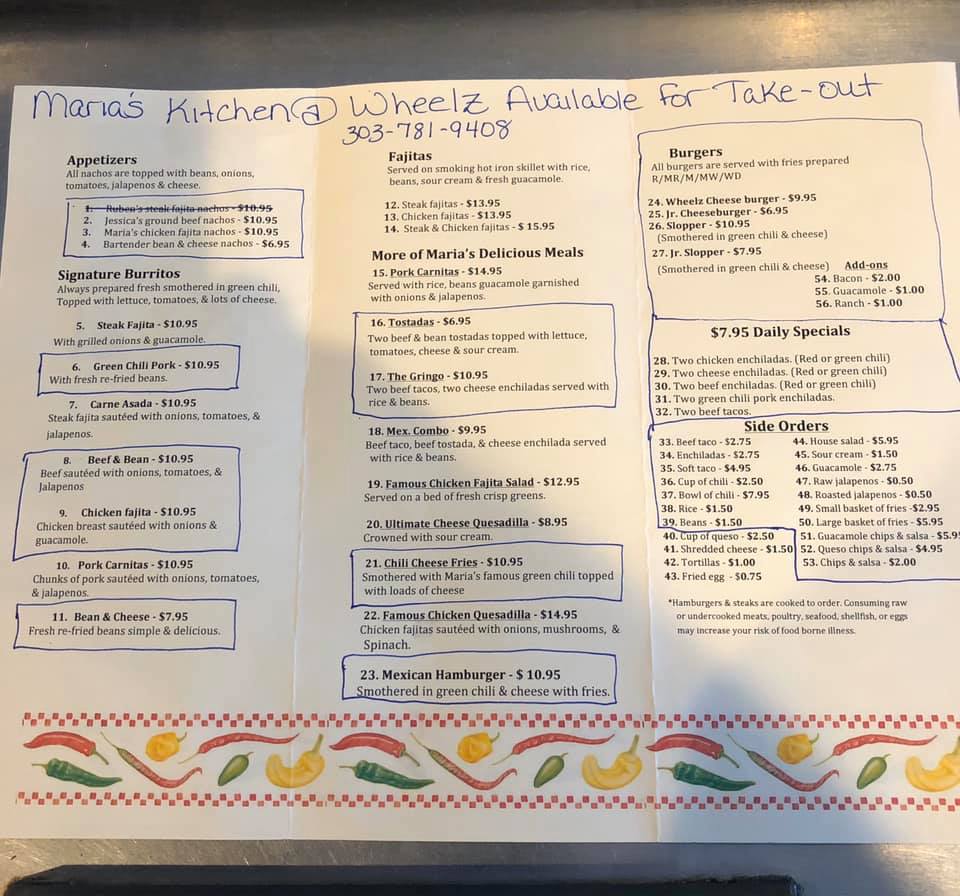 Maria's Kitchen @ Wheelz Available for Take-out
303-781-9408
Appetizers
All nachos are topped with beans, onions,
tomatoes, jalapenos & cheese.
1. Ruben's steak fajita nachos - $10.95
2. Jessica's ground beef nachos - $10.95
3. Maria's chicken fajita nachos - $10.95
4. Bartender bean & cheese nachos - $6.95
Signature Burritos
Always prepared fresh smothered in green chili,
Topped with lettuce, tomatoes, & lots of cheese.
5. Steak Fajita - $10.95
With grilled onions & guacamole.
6. Green Chili Pork - $10.95
With fresh re-fried beans.
7. Carne Asada - $10.95
Steak fajita sautéed with onions, tomatoes, &
jalapenos.
8. Beef & Bean - $10.95
Beef sautéed with onions, tomatoes, &
Jalapenos
9. Chicken fajita - $10.95
Chicken breast sautéed with onions &
guacamole.
10. Pork Carnitas - $10.95
Chunks of pork sautéed with onions, tomatoes,
& jalapenos.
11. Bean & Cheese - $7.95
Fresh re-fried beans simple & delicious.
Fajitas
Served on smoking hot iron skillet with rice,
beans, sour cream & fresh guacamole.
12. Steak fajitas - $13.95
13. Chicken fajitas - $13.95
14. Steak & Chicken fajitas - $ 15.95
More of Maria's Delicious Meals
15. Pork Carnitas - $14.95
Served with rice, beans guacamole garnished
with onions & jalapenos.
16. Tostadas - $6.95
Two beef & bean tostadas topped with lettuce,
tomatoes, cheese & sour cream.
17. The Gringo - $10.95
Two beef tacos, two cheese enchiladas served with
rice & beans.
18. Mex. Combo - $9.95
Beef taco, beef tostada, & cheese enchilada served
with rice & beans.
19. Famous Chicken Fajita Salad - $12.95
Served on a bed of fresh crisp greens.
20. Ultimate Cheese Quesadilla - $8.95
Crowned with sour cream.
21. Chili Cheese Fries - $10.95
Smothered with Maria's famous green chili topped
with loads of cheese
22. Famous Chicken Quesadilla - $14.95
Chicken fajitas sautéed with onions, mushrooms, &
Spinach.
23. Mexican Hamburger - $ 10.95
Smothered in green chili & cheese with fries.
Burgers
All burgers are served with fries prepared
R/MR/M/MW/WD
24. Wheelz Cheese burger - $9.95
25. Jr. Cheeseburger - $6.95
26. Slopper - $10.95
(Smothered in green chili & cheese)
27. Jr. Slopper - $7.95
(Smothered in green chili & cheese)
Add-ons
54. Bacon - $2.00
55. Guacamole - $1.00
56. Ranch - $1.00
$7.95 Daily Specials
28. Two chicken enchiladas. (Red or green chili)
29. Two cheese enchiladas. (Red or green chili)
30. Two beef enchiladas. (Red or green chili)
31. Two green chili pork enchiladas.
32. Two beef tacos.
Side Orders
33. Beef taco - $2.75
34. Enchiladas - $2.75
35. Soft taco - $4.95
36. Cup of chili - $2.50
37. Bowl of chili - $7.95
38. Rice - $1.50
39. Beans - $1.50
40. Cup of queso - $2.50
41. Shredded cheese - $1.50
42. Tortillas - $1.00
43. Fried egg - $0.75
44. House salad - $5.95
45. Sour cream - $1.50
46. Guacamole - $2.75
47. Raw jalapenos - $0.50
48. Roasted jalapenos - $0.50
49. Small basket of fries -$2.95
50. Large basket of fries - $5.95
51. Guacamole chips & salsa - $5.9
52. Queso chips & salsa - $4.95
53. Chips & salsa - $2.00
*Hamburgers & steaks are cooked to order. Consuming raw
or undercooked meats, poultry, seafood, shellfish, or eggs
may increase your risk of food borne illness.